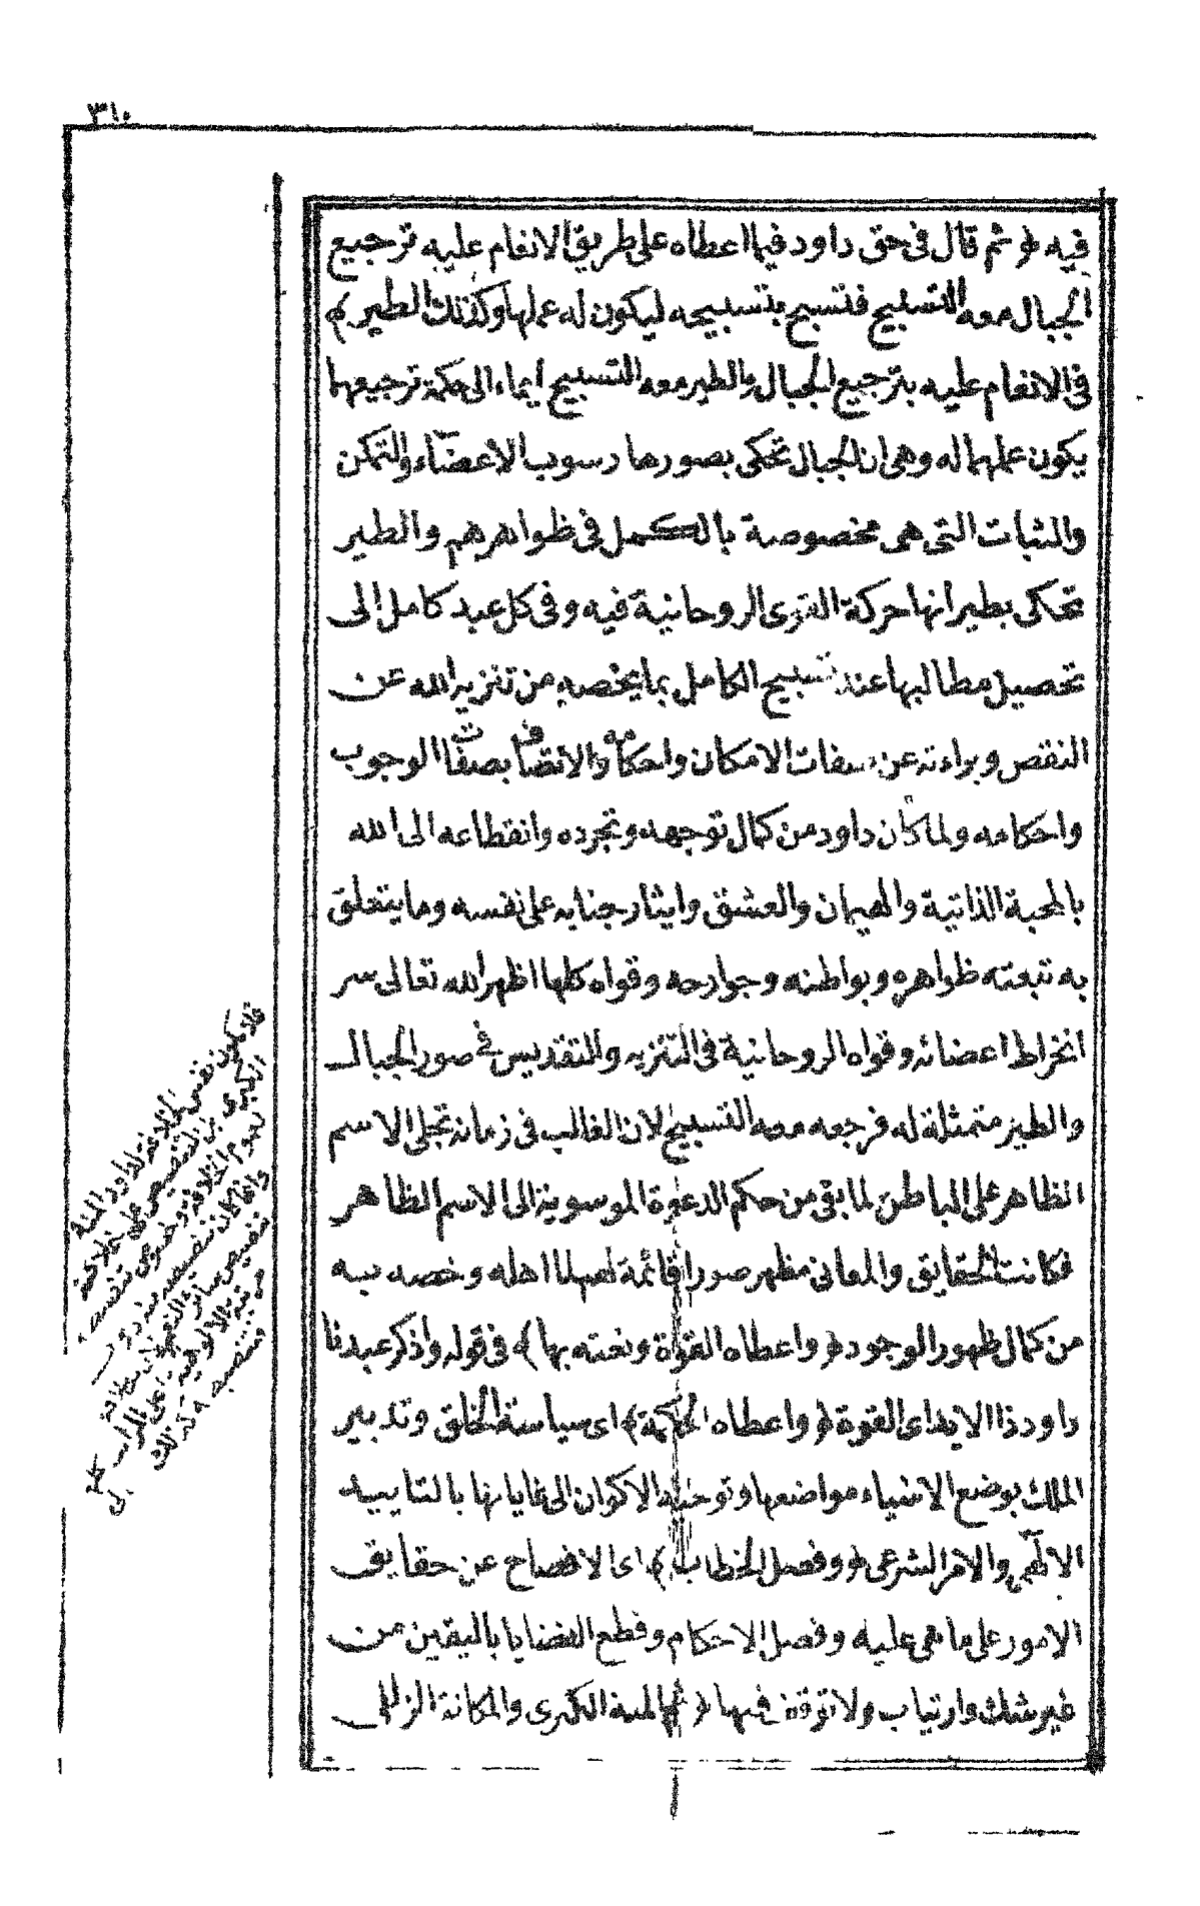 ٣١٠
فيه ﴿ ثم قال فى حق داود فيما اعطاه على طريق الانعام عليه ترجيع
الجبال معه التسبيح فتسبح بتسبيحه ليكون له عملها وكذلك الطير ﴾
فى الانعام عليه بترجيع الجبال والطير معه التسبيح ايماء الى حكمة ترجيعهما
يكون عملهما له وهى ان الجبال تحكى بصورها رسوب الاعضاء والتمكن
والثبات التى هى مخصوصة بالكمل فى ظواهرهم والطير
تحكى بطيرانها حركة القوى الروحانية فيه وفى كل عبد كامل الى
تحصيل مطالبها عند تسبيح الكامل بما يخصه من تنزيه الله عن
النقص وبراءته عن صفات الامكان واحكامه والاتصاف بصفات الوجوب
واحكامه ولما كان داود من كمال توجهه وتجرده وانقطاعه الى الله
بالمحبة الذاتية والهيمان والعشق وايثار جنابه على نفسه وما يتعلق
به تبعته ظواهره وبواطنه وجوارحه وقواه كلها اظهر الله تعالى سر
انخراط اعضائه وقواه الروحانية فى التنزيه والتقديس فى صور الجبال
والطير متمثلة له فرجعه معه التسبيح لان الغالب فى زمانه تجلى الاسم
الظاهر على الباطن لما بقى من حكم الدعوة الموسوية الى الاسم الظاهر
فكانت الحقايق والمعانى مظهر صورا قائمة لهما اهله وخصه به
من كمال ظهور الوجود ﴿ واعطاه القوة ونعته بها ﴾ فى قوله واذكر عبدنا
داود ذا الايد اى القوة ﴿ واعطاه الحكمة ﴾ اى سياسة الخلق وتدبير
الملك بوضع الاشياء مواضعها وتوجيه الاكوان الى غاياتها بالتاييد
الالهى والامر الشرعى ﴿ وفصل الخطاب ﴾ اى الافصاح عن حقايق
الامور على ما هى عليه وفصل الاحكام وقطع القضايا باليقين من
غير شك وارتياب ولا توقف فيها ﴿ ثم المنة الكبرى والمكانة الزلفى
فلا يكون نفس الخلافة لداود المنة
الكبرى بل التنصيص على خلافته